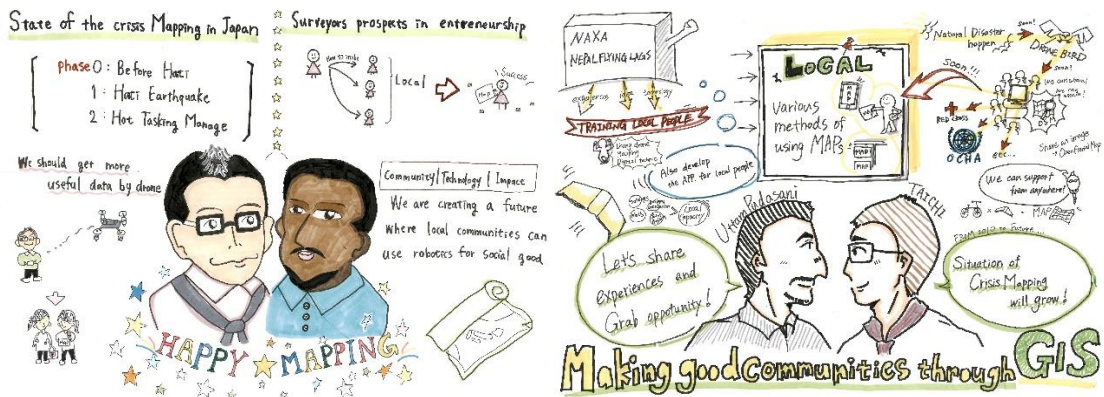 State of the crisis Mapping in Japan
phase 0 : Before Haiti
1 : Haiti Earthquake
2 : Hot Tasking Manage
We should get more
useful data by drone
Surveyors prospects in entreneurship
How to make
Local
Success
MAP
Community | Technology | Impact
We are creating a future
where local communities can
use robotics for social good
HAPPY MAPPING
NAXA
NEPAL FLYING LABS
TRAINING LOCAL PEOPLE
Also develop
the APP for local people
Local
LOCAL
MAP
various
methods of
using MAPs
MAP
MAP
Natural Disaster
happen
soon!
DRONE BIRD
soon!
soon!!!
RED CROSS
OCHA
etc...
We can support
from anywhere!
MAP
Uttam Pudasaini
TAICHI
Let's share
experiences and
Grab oppotunity!
Situation of
Crisis Mapping
will grow!
Making good communities through GIS